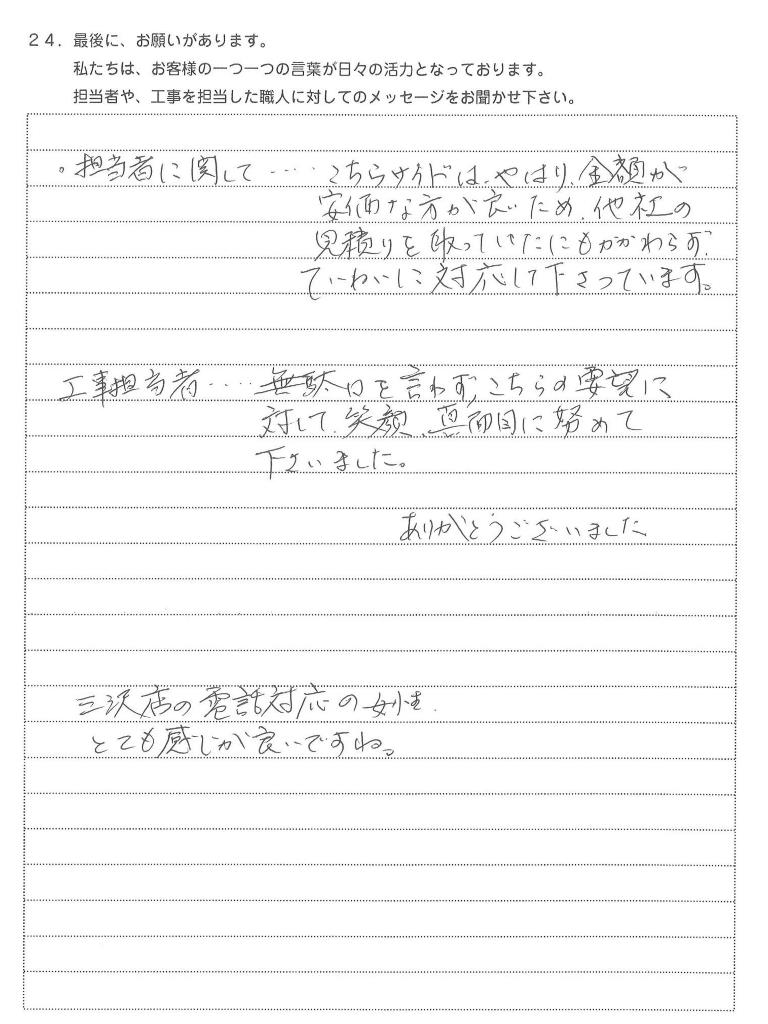 ２４．最後に、お願いがあります。
私たちは、お客様の一つ一つの言葉が日々の活力となっております。
担当者や、工事を担当した職人に対してのメッセージをお聞かせ下さい。
。担当者に関して‥‥こちらサイドは、やはり、金額が
安価な方が良いため、他社の
見積りを取っていたにもかかわらず、
ていねいに対応して下さっています。
工事担当者‥‥無駄口を言わず、こちらの要望に
対して、笑顔、真面目に努めて
下さいました。
ありがとうございました
三沢店の電話対応の女性、
とても感じが良いですね。